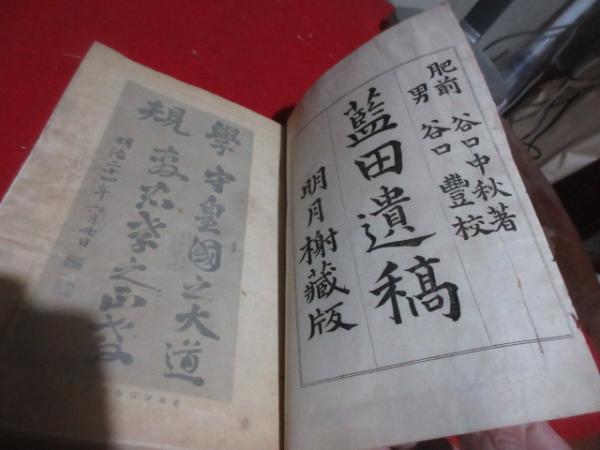 肥前 谷口中秋著
男 谷口 豐校
藍田遺稿
明月榭藏版
學守皇國之大道
規忠孝之正
明治二十四年六月廿日